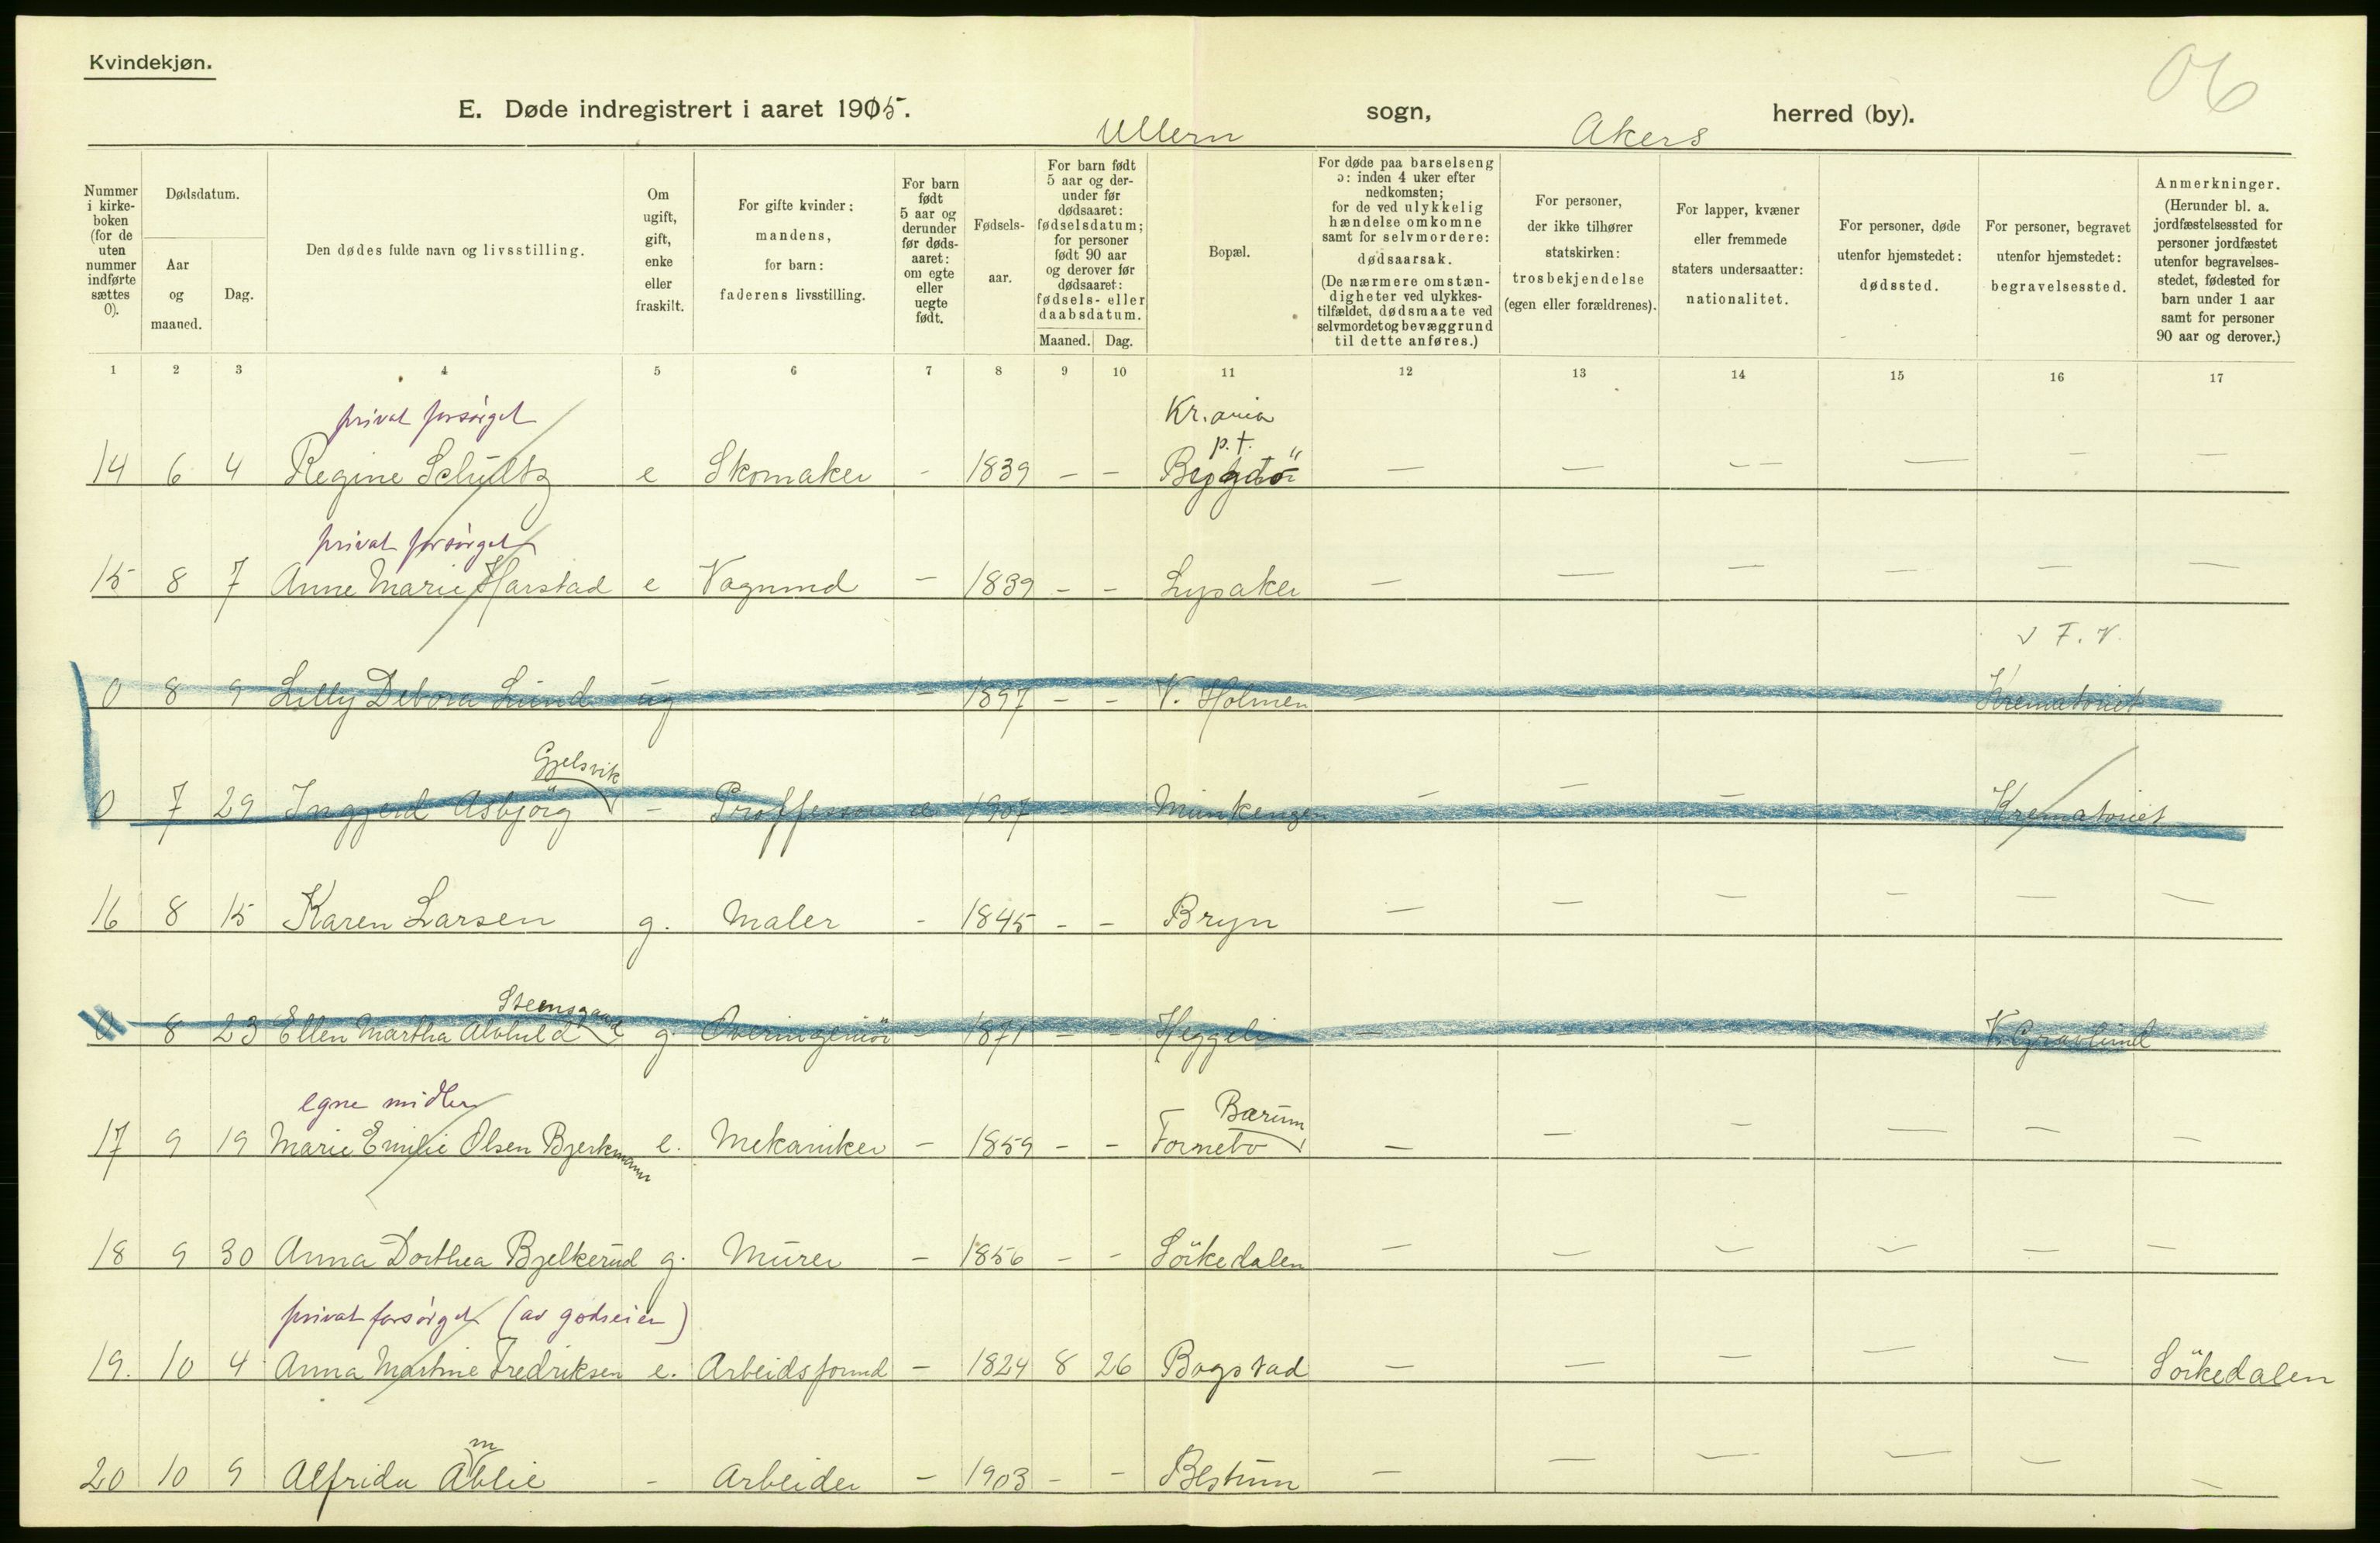 Kvindekjøn.
06
E. Døde indregistrert i aaret 1905. Ullern sogn, Akers herred (by).
Nummer i kirke-boken (for de uten nummer indførte sættes 0).
Dødsdatum.
Aar og maaned.
Dag.
Den dødes fulde navn og livsstilling.
Om ugift, gift, enke eller fraskilt.
For gifte kvinder: mandens, for barn: faderens livsstilling.
For barn født 5 aar og derunder før døds-aaret: om egte eller uegte født.
Fødsels-aar.
For barn født 5 aar og der-under før dødsaaret: fødselsdatum; for personer født 90 aar og derover før dødsaaret: fødsels- eller daabsdatum.
Maaned. Dag.
Bopæl.
For døde paa barselseng ɔ: inden 4 uker efter nedkomsten; for de ved ulykkelig hændelse omkomne samt for selvmordere: dødsaarsak. (De nærmere omstæn-digheter ved ulykkes-tilfældet, dødsmaate ved selvmordet og bevæggrund til dette anføres.)
For personer, der ikke tilhører statskirken: trosbekjendelse (egen eller forældrenes).
For lapper, kvæner eller fremmede staters undersaatter: nationalitet.
For personer, døde utenfor hjemstedet: dødssted.
For personer, begravet utenfor hjemstedet: begravelsessted.
Anmerkninger. (Herunder bl. a. jordfæstelsessted for personer jordfæstet utenfor begravelses-stedet, fødested for barn under 1 aar samt for personer 90 aar og derover.)
1 2 3 4 5 6 7 8 9 10 11 12 13 14 15 16 17
privat forsørget Kr.ania
p.t.
14 6 4 Regine Schultz e Skomaker - 1839 - - Bygdö — — — — — —
privat forsørget
15 8 7 Anne Marie Harstad e Vognmd — 1839 - - Lysaker — — — — — —
√ F. V.
0 8 9 Lilly Debora Lund ug - 1897 - - V. Holmen — Krematoriet
Gjelsvik
0 7 29 Inggerd Asbjörg - Proffessor e 1907 - - Munkengen — — — Krematoriet
16 8 15 Karen Larsen g. Maler - 1845 - - Bryn — — — — — —
Steensgaard
0 8 23 Ellen Martha Alvhild g. Overingeniör - 1871 - - Heggeli — V. Gravlund
egne midler Bærum
17 9 19 Marie Emilie Olsen Bjerkmann e. Mekaniker - 1859 - - Fornebo — — — — — —
18 9 30 Anna Dorthea Bjelkerud g. Murer - 1856 - - Sörkedalen — — — — — —
privat forsørget (av godseier)
19. 10 4 Anna Martine Fredriksen e. Arbeidsformd - 1824 8 26 Bogstad — — — — — Sörkedalen
m
20 10 9 Alfrida Ablie - Arbeider - 1903 - - Bestum — — — — — —